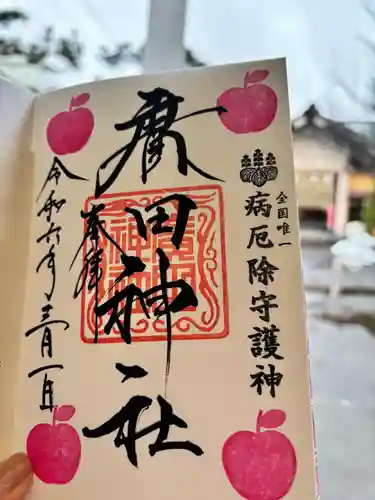 全国唯一
病厄除守護神
廣田神社
奉拝
令和六年三月一日
廣田神社